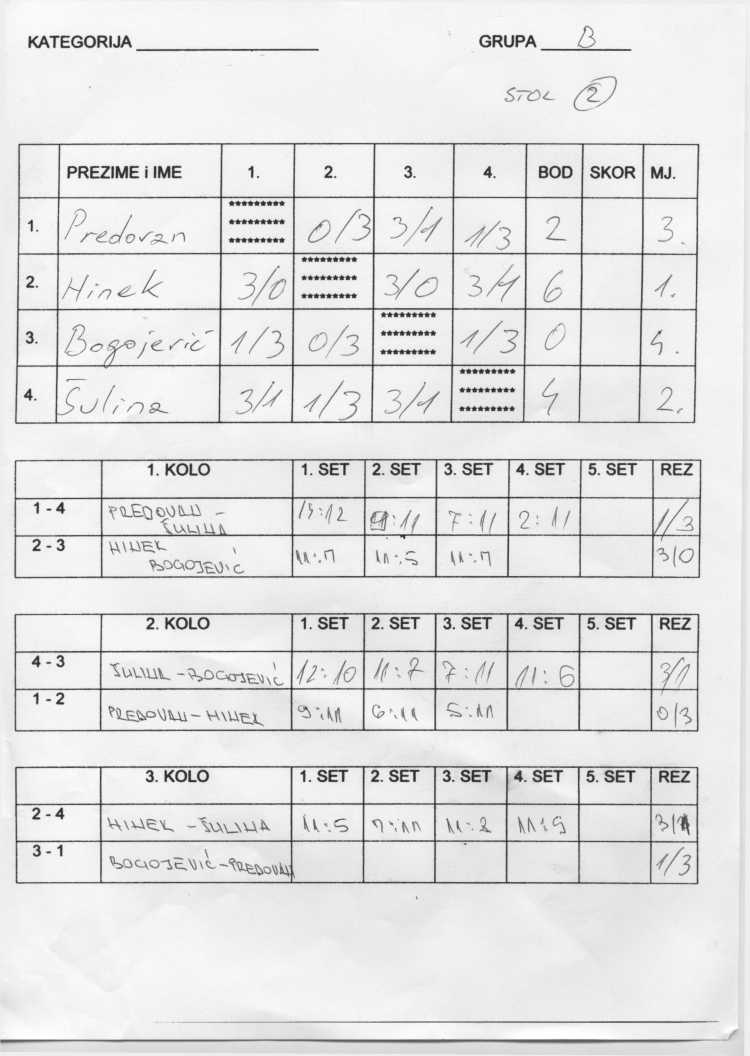 KATEGORIJA GRUPA B
STOL 2
PREZIME i IME 1. 2. 3. 4. BOD SKOR MJ.
1. Predovan ********* ********* ********* 0/3 3/1 1/3 2 3.
2. Hinek 3/0 ********* ********* ********* 3/0 3/1 6 1.
3. Bogojević 1/3 0/3 ********* ********* ********* 1/3 0 4.
4. Šulina 3/1 1/3 3/1 ********* ********* ********* 4 2.
1. KOLO 1. SET 2. SET 3. SET 4. SET 5. SET REZ
1 - 4 PREDOVAN - ŠULINA :12 9:11 7:11 2:11 1/3
2 - 3 HINEK BOGOJEVIĆ 11:7 11:5 11:7 3/0
2. KOLO 1. SET 2. SET 3. SET 4. SET 5. SET REZ
4 - 3 ŠULINA - BOGOJEVIĆ 12:10 11:7 7:11 11:6 3/1
1 - 2 PREDOVAN - HINEK 9:11 6:11 5:11 0/3
3. KOLO 1. SET 2. SET 3. SET 4. SET 5. SET REZ
2 - 4 HINEK - ŠULINA 11:5 7:11 11:2 11:9 3/1
3 - 1 BOGOJEVIĆ - PREDOVAN 1/3